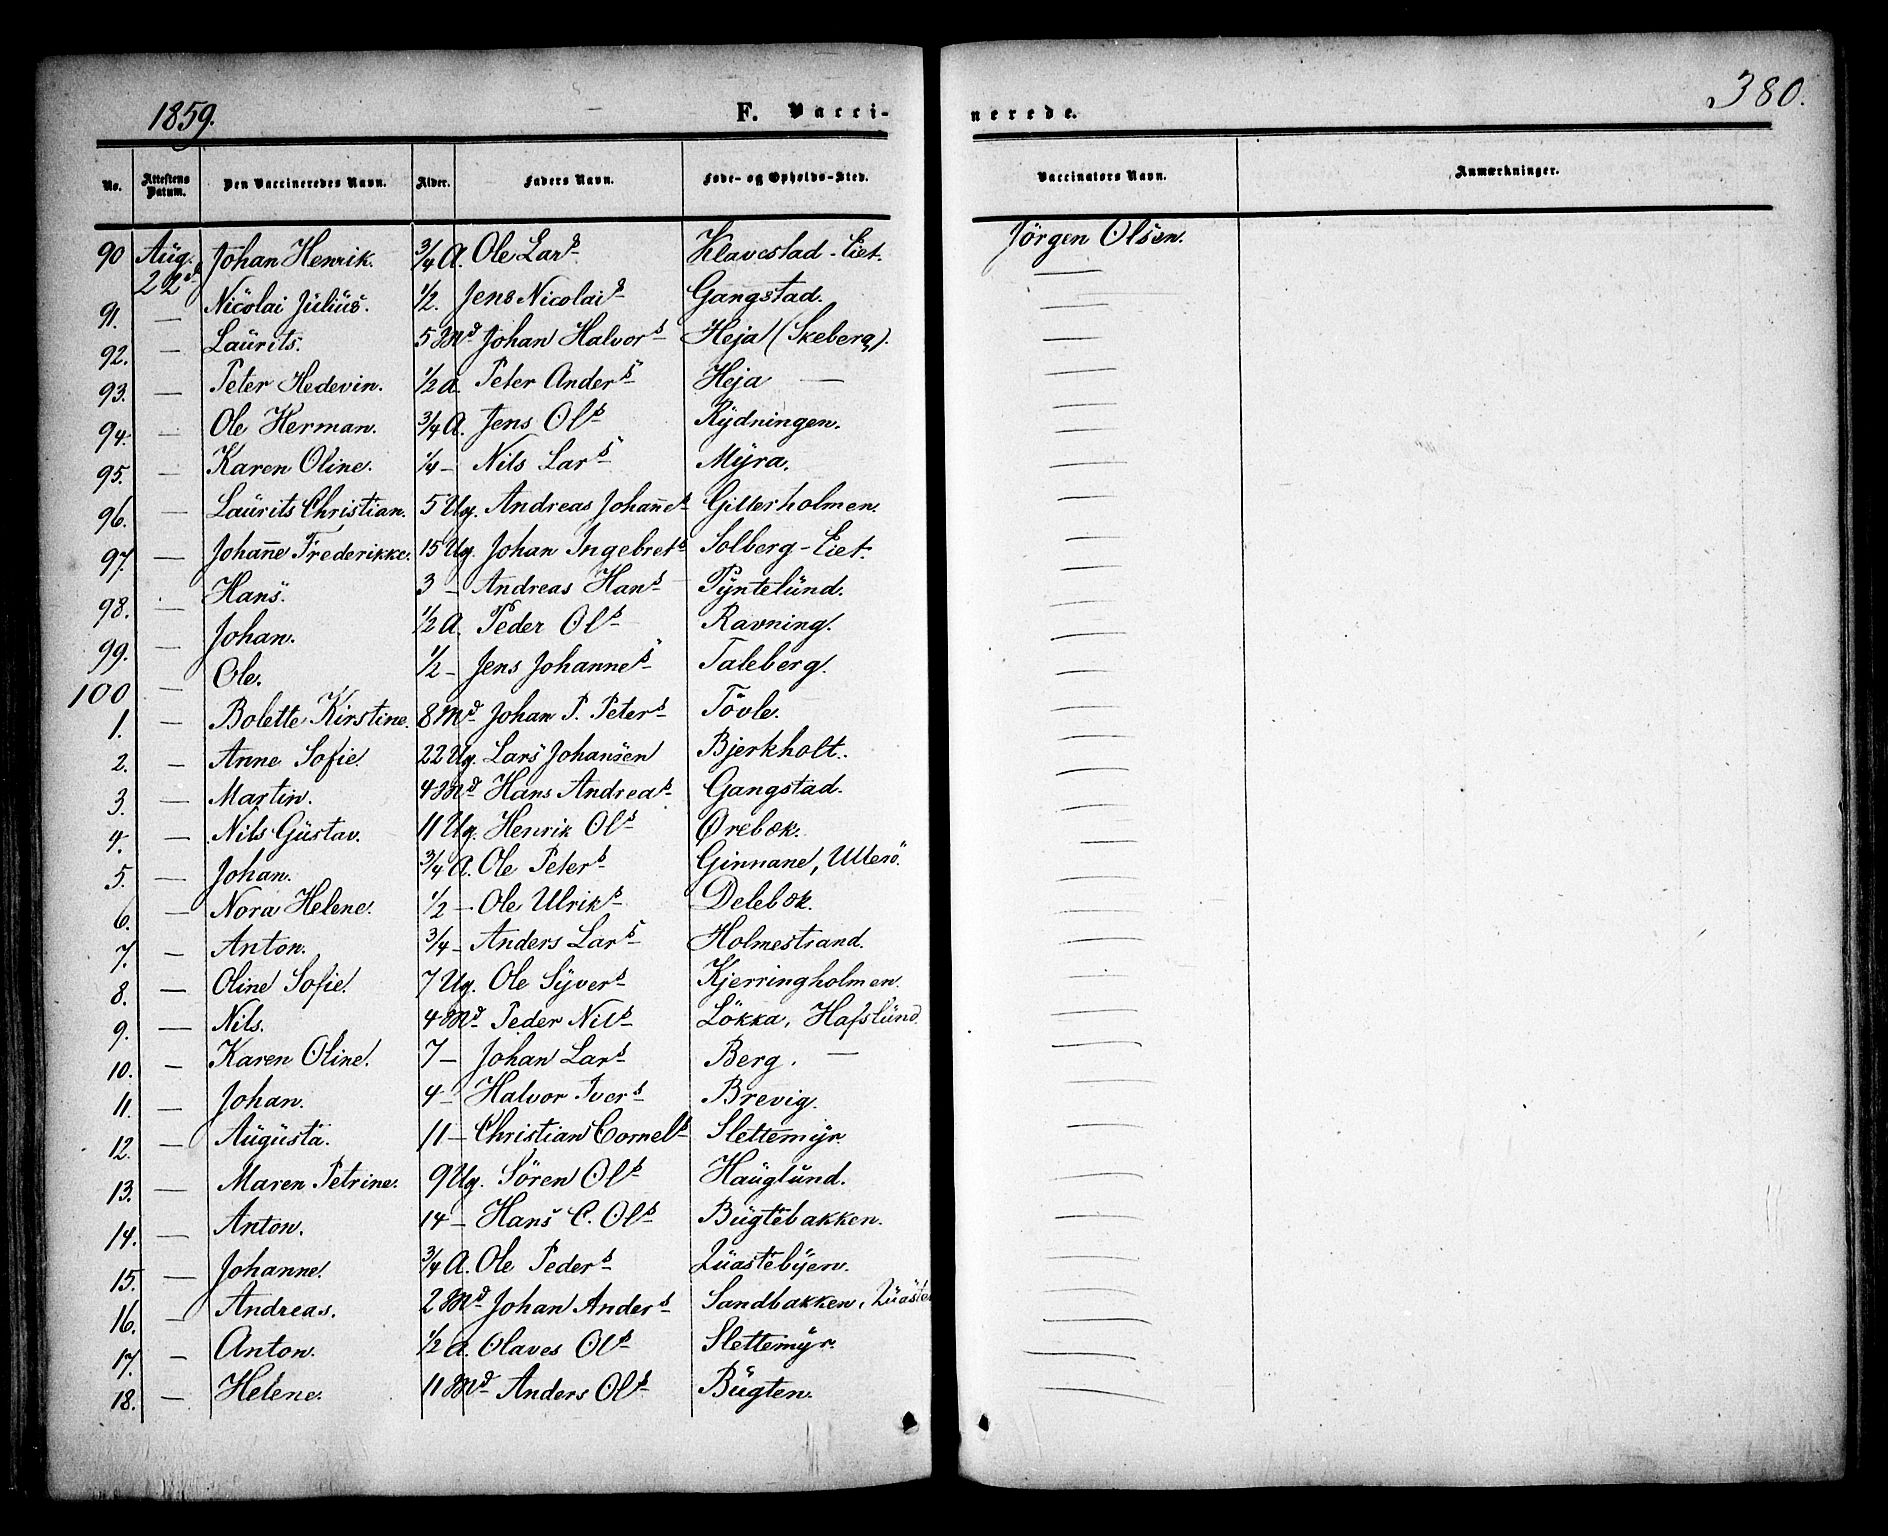 1859. F. Vacci- nerede. 380.
No. Attestens Datum. Den Vaccineredes Navn. Alder. Faders Navn. Føde- og Opholds-Sted. Vaccinators Navn. Anmærkninger.
90 Aug. 22d Johan Henrik. 3/4 A. Ole Lars Klavestad-Eiet. Jörgen Olsen.
91. — Nicolai Julius. 1/2. Jens Nicolais Gangstad. —
92. — Laurits. 5 Md Johan Halvors Heja (Skeberg). —
93. — Peter Hedevin. 1/2 A. Peter Anders Heja — —
94. — Ole Herman. 3/4 A. Jens Ols Rydningen. —
95. — Karen Oline. 1/4 — Nils Lars Myra. —
96. — Laurits Christian. 5 Ug. Andreas Johannes Gitterholmen. —
97. — Johanne Frederikke. 15 Ug. Johan Ingebrets Solberg-Eiet. —
98. — Hans. 3 — Andreas Hans Pyntelund. —
99. — Johan. 1/2 A. Peder Ols Ravning. —
100 — Ole. 1/2 — Jens Johannes Taleberg. —
1. — Bolette Kirstine. 8 Md Johan P. Peters Tövle. —
2. — Anne Sofie. 22 Ug. Lars Johansen Bjerkholt. —
3. — Martin. 4 Md Hans Andreas Gangstad. —
4. — Nils Gustav. 11 Ug. Henrik Ols Ørebæk. —
5. — Johan. 3/4 A. Ole Peters Ginnane, Utterö. —
6. — Nora Helene. 1/2 — Ole Ulriks Delebæk. —
7. — Anton. 3/4 — Anders Lars Holmestrand. —
8. — Oline Sofie. 7 Ug. Ole Syvers Kjerringholmen. —
9. — Nils. 4 Md Peder Nils Lökka, Hafslund. —
10. — Karen Oline. 7 — Johan Lars Berg. — —
11. — Johan. 4 — Halvor Ivers Brevig. —
12. — Augusta. 11 — Christian Cornels Slettemyr. —
13. — Maren Petrine. 9 Ug. Sören Ols Hauglund. —
14. — Anton. 14 — Hans C. Ols Bugtebakken. —
15. — Johanne. 3/4 A. Ole Peders —
16. — Andreas. 2 Md Johan Anders Sandbakken, —
17. — Anton. 1/2 A. Olaves Ols Slettemyr. —
18. — Helene. 11 Md Anders Ols Bugten. —